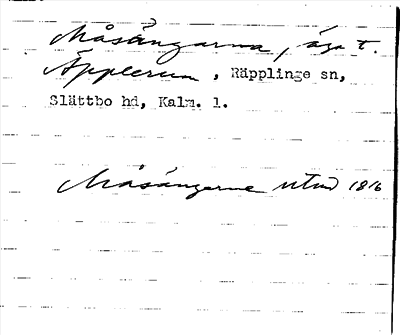 Måsängarna, äga t.
Äpplerum, Räpplinge sn,
Slättbo hd, Kalm. l.
Måsängerne utmd 1816